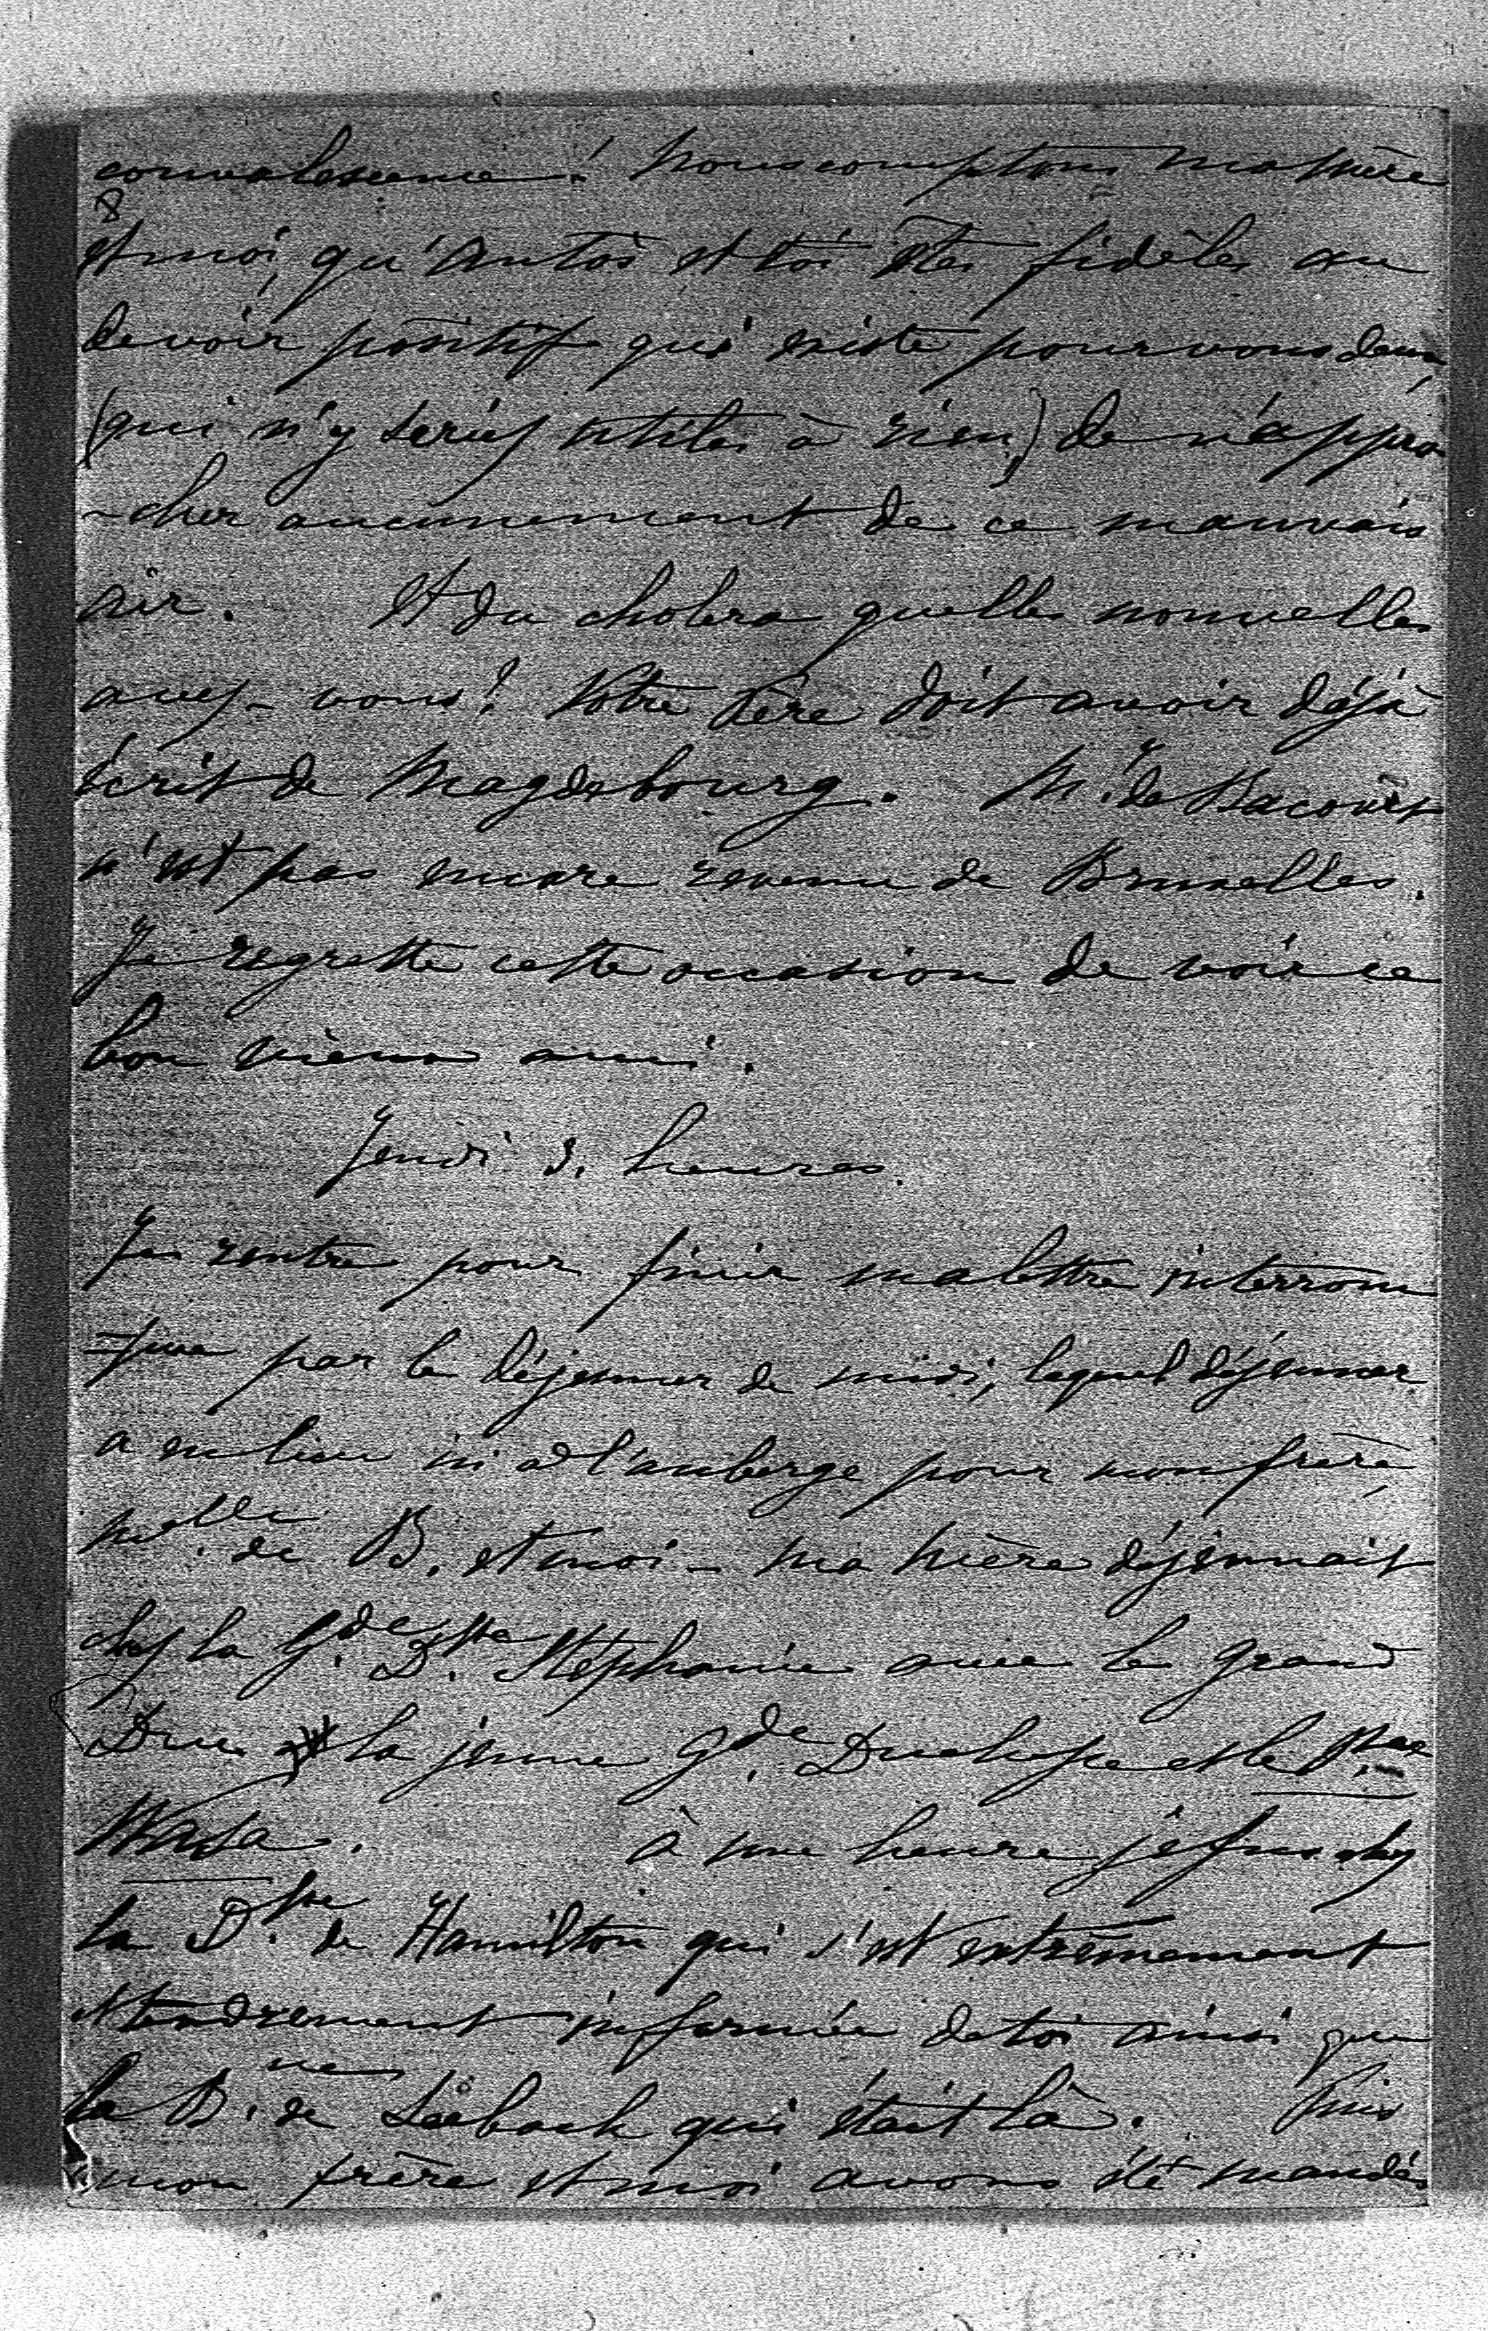 convalescence! Nous comptons ma mère
8
et moi, qu'Antos et toi êtes fidèles au
devoir positif qui existe pour vous deux,
(qui n'y seriez utiles à rien,) de n'appro-
-cher aucunement de ce mauvais
air. Et du cholera quelles nouvelles
avez-vous? Votre Père doit avoir déjà
écrit de Magdebourg. Mr. de Bacourt
n'est pas encore revenu de Bruxelles.
Je regrette cette occasion de voir ce
bon vieux ami.
Jeudi 3. heures.
Je rentre pour finir ma lettre interrom
=pue par le déjeuner de midi, lequel déjeuner
a eu lieu ici à l'auberge pour mon frère
Melle. de B. et moi - ma Mère déjeunait
chez la Gde. Dsse Stéphanie avec le Grand
Duc la jeune Gde. Duchesse et la Psse
Wasa. à une heure je fus chez
la Dsse. de Hamilton qui s'est extrêmement
et tendrement informée de toi ainsi que
la Bne. de qui était là. Puis
mon frère et moi avons été mandés